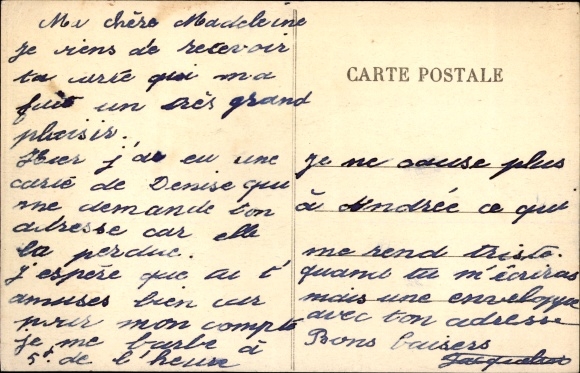 Ma chère Madeleine
je viens de recevoir
ta carte qui m'a
fait un très grand
plaisir.
Hier j'ai eu une
carte de Denise qui
me demande ton
adresse car elle
la perdue.
j'espère que tu t'
amuses bien car
pour mon compte
je me barbe à
de l'heure
CARTE POSTALE
Je ne cause plus
à Andrée ce qui
me rend triste.
quand tu m'écriras
mais une enveloppe
avec ton adresse
Bons baisers
Jacqueline